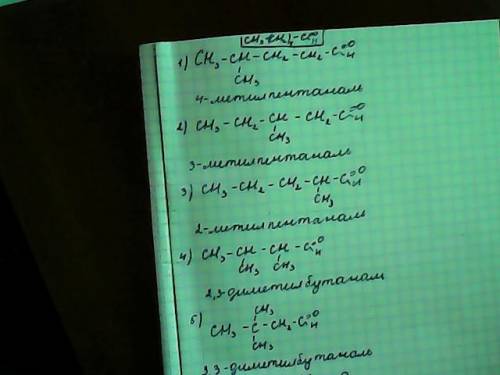 CH₃-(CH₂)₄-C=O H
1) CH₃-CH-CH₂-CH₂-C=O H
CH₃
4-метилпентаналь
2) CH₃-CH₂-CH-CH₂-C=O H
CH₃
3-метилпентаналь
3) CH₃-CH₂-CH₂-CH-C=O H
CH₃
2-метилпентаналь
4) CH₃-CH-CH-C=O H
CH₃ CH₃
2,3-диметилбутаналь
CH₃
5) CH₃-C-CH₂-C=O H
CH₃
3,3-диметилбутаналь